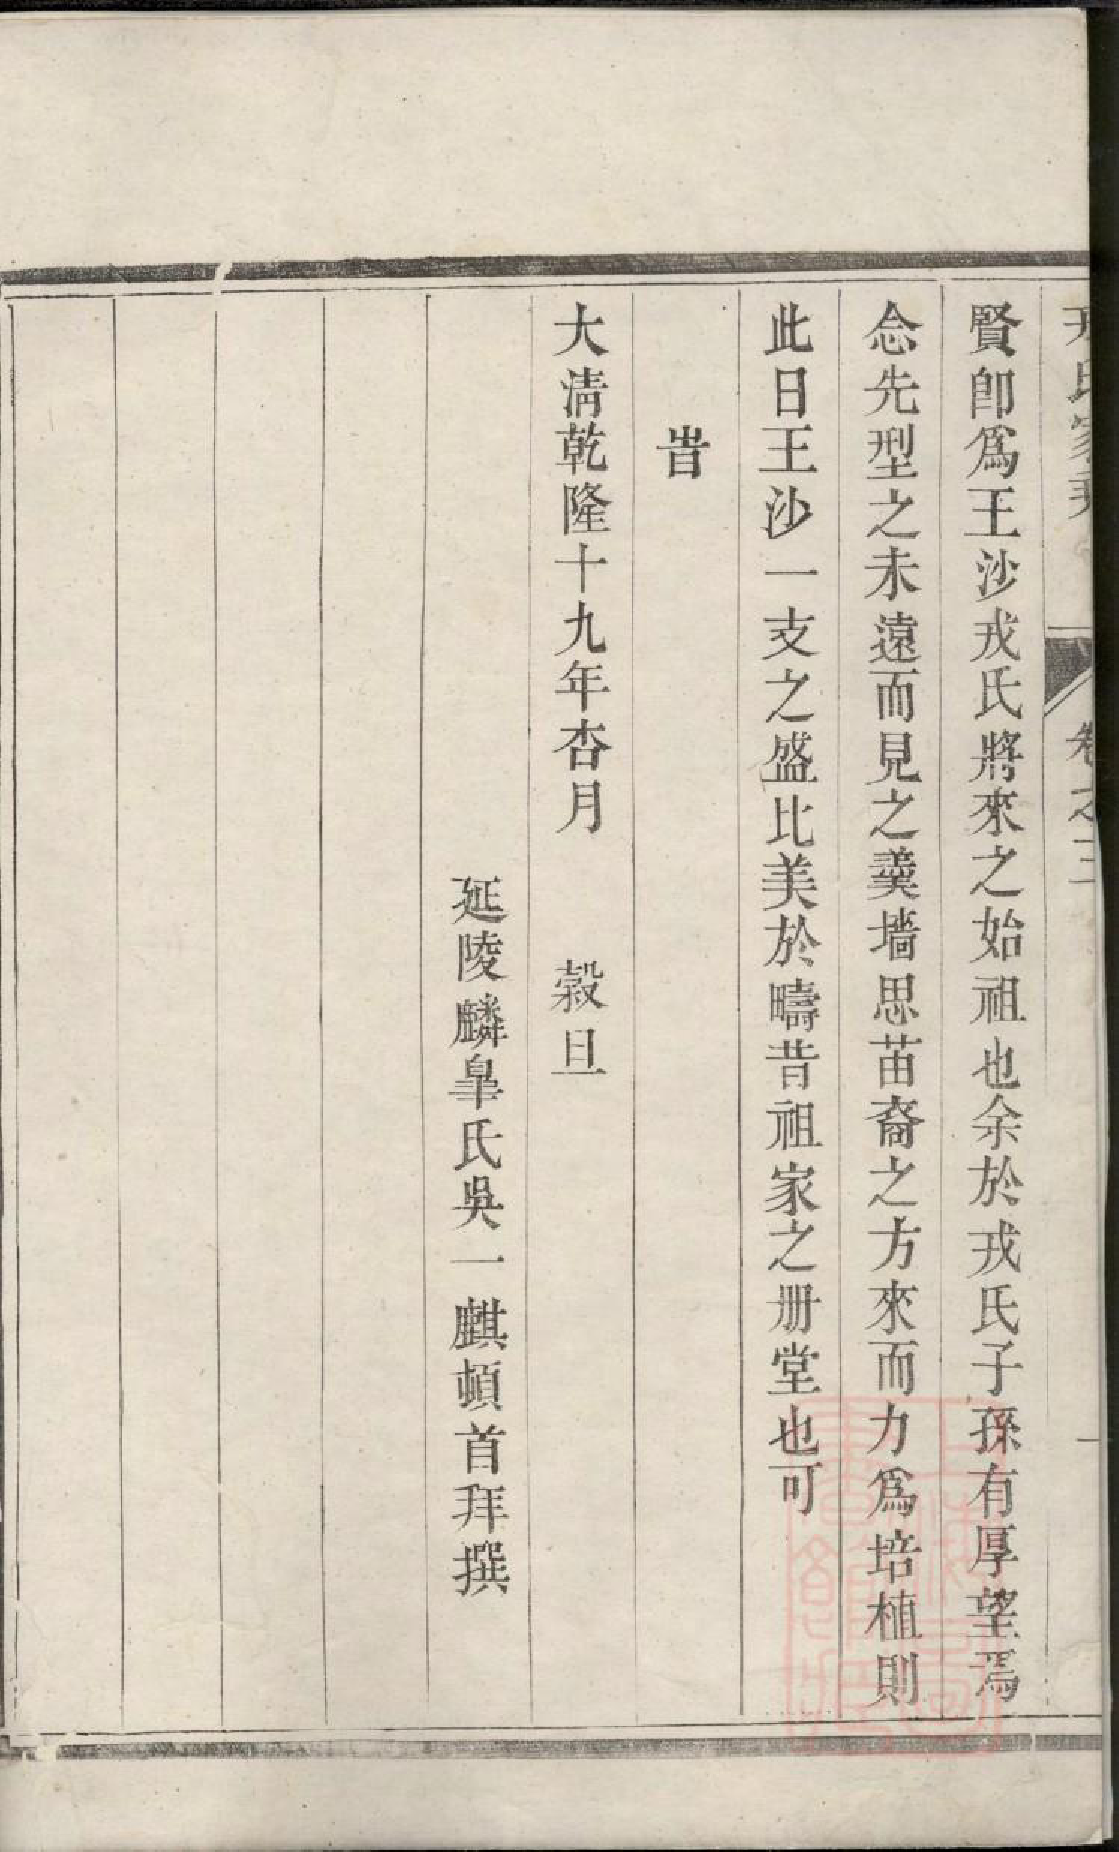 戎氏家乘 卷之三
賢卽爲王沙戎氏將來之始祖也余於戎氏子孫有厚望焉
念先型之未遠而見之羹墻思苗裔之方來而力爲培植則
此日王沙一支之盛比美於疇昔祖家之册堂也可
旹
大淸乾隆十九年杏月 榖旦
延陵麟臯氏吳一麒頓首拜撰